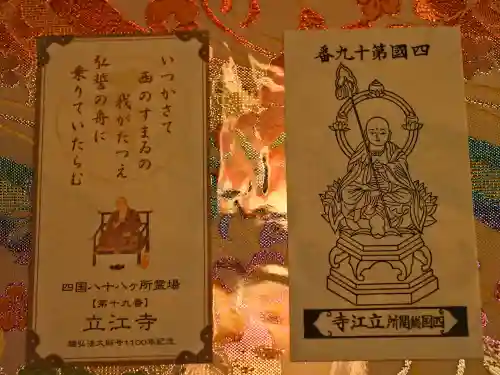 いつかさて
西のすまゐの
我がたつえ
弘誓の舟に
乗りていたらむ
四国八十八ヶ所霊場
【第十九番】
立江寺
諡弘法大師号1100年記念
四國第十九番
四国總関所立江寺